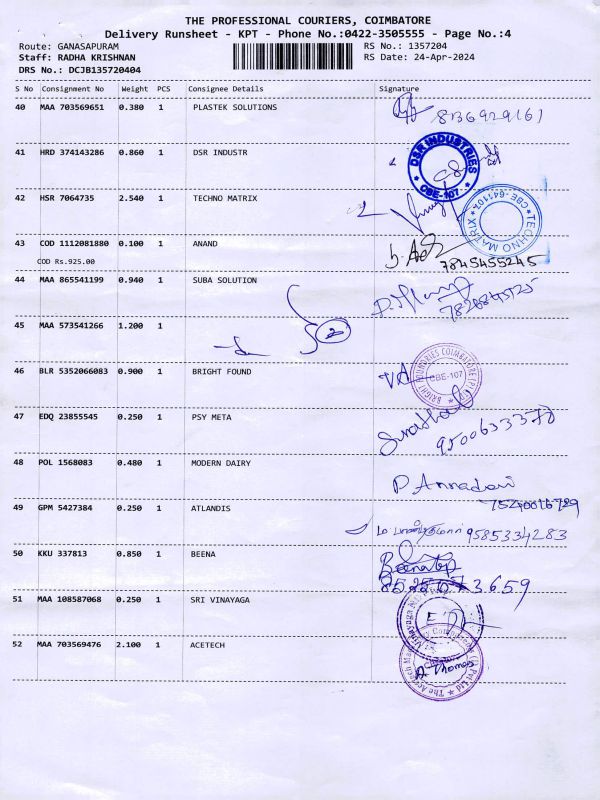 THE PROFESSIONAL COURIERS, COIMBATORE
Delivery Runsheet - KPT - Phone No.:0422-3505555 - Page No.:4
Route: GANASAPURAM RS No.: 1357204
Staff: RADHA KRISHNAN RS Date: 24-Apr-2024
DRS No.: DCJB135720404
S No Consignment No Weight PCS Consignee Details Signature
40 MAA 703569651 0.380 1 PLASTEK SOLUTIONS
41 HRD 374143286 0.860 1 DSR INDUSTR
DSR INDUSTRIES
CBE-107
42 HSR 7064735 2.540 1 TECHNO MATRIX
TECHNO MATRIX
43 COD 1112081880 0.100 1 ANAND
COD Rs.925.00
7845455245
44 MAA 865541199 0.940 1 SUBA SOLUTION
45 MAA 573541266 1.200 1
2
46 BLR 5352066083 0.900 1 BRIGHT FOUND
CBE-107
47 EDQ 23855545 0.250 1 PSY META
9500633378
48 POL 1568083 0.480 1 MODERN DAIRY
49 GPM 5427384 0.250 1 ATLANDIS
9585334283
50 KKU 337813 0.850 1 BEENA
51 MAA 108587068 0.250 1 SRI VINAYAGA
52 MAA 703569476 2.100 1 ACETECH